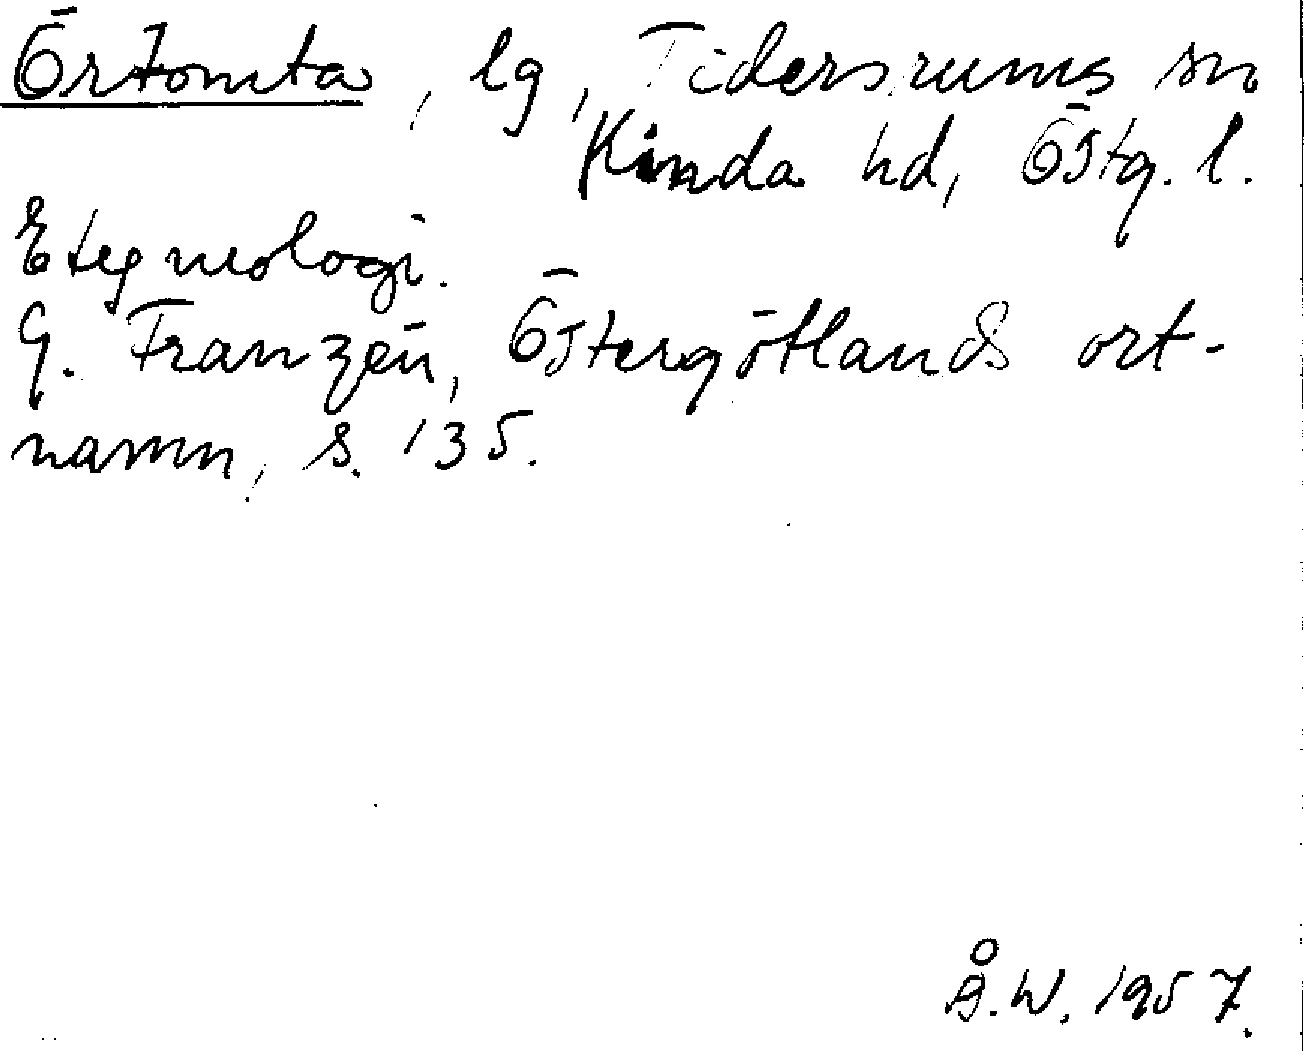 Örtomta, lg, Tidersrums sn
Kinda hd, Östg. l.
Etymologi.
G. Franzén, Östergötlands ort-
namn, s. 135.
Å.W. 1957.